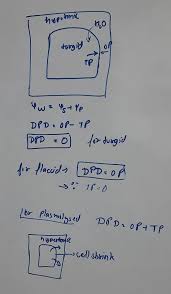 hypotonic
H₂O
turgid
TP
OP
Ψw = Ψs + Ψp
DPD = OP - TP
DPD = 0 for turgid
for flaccid → DPD = OP
→ ∵ TP = 0
for plasmolysed DPD = OP + TP
→ cell shrink